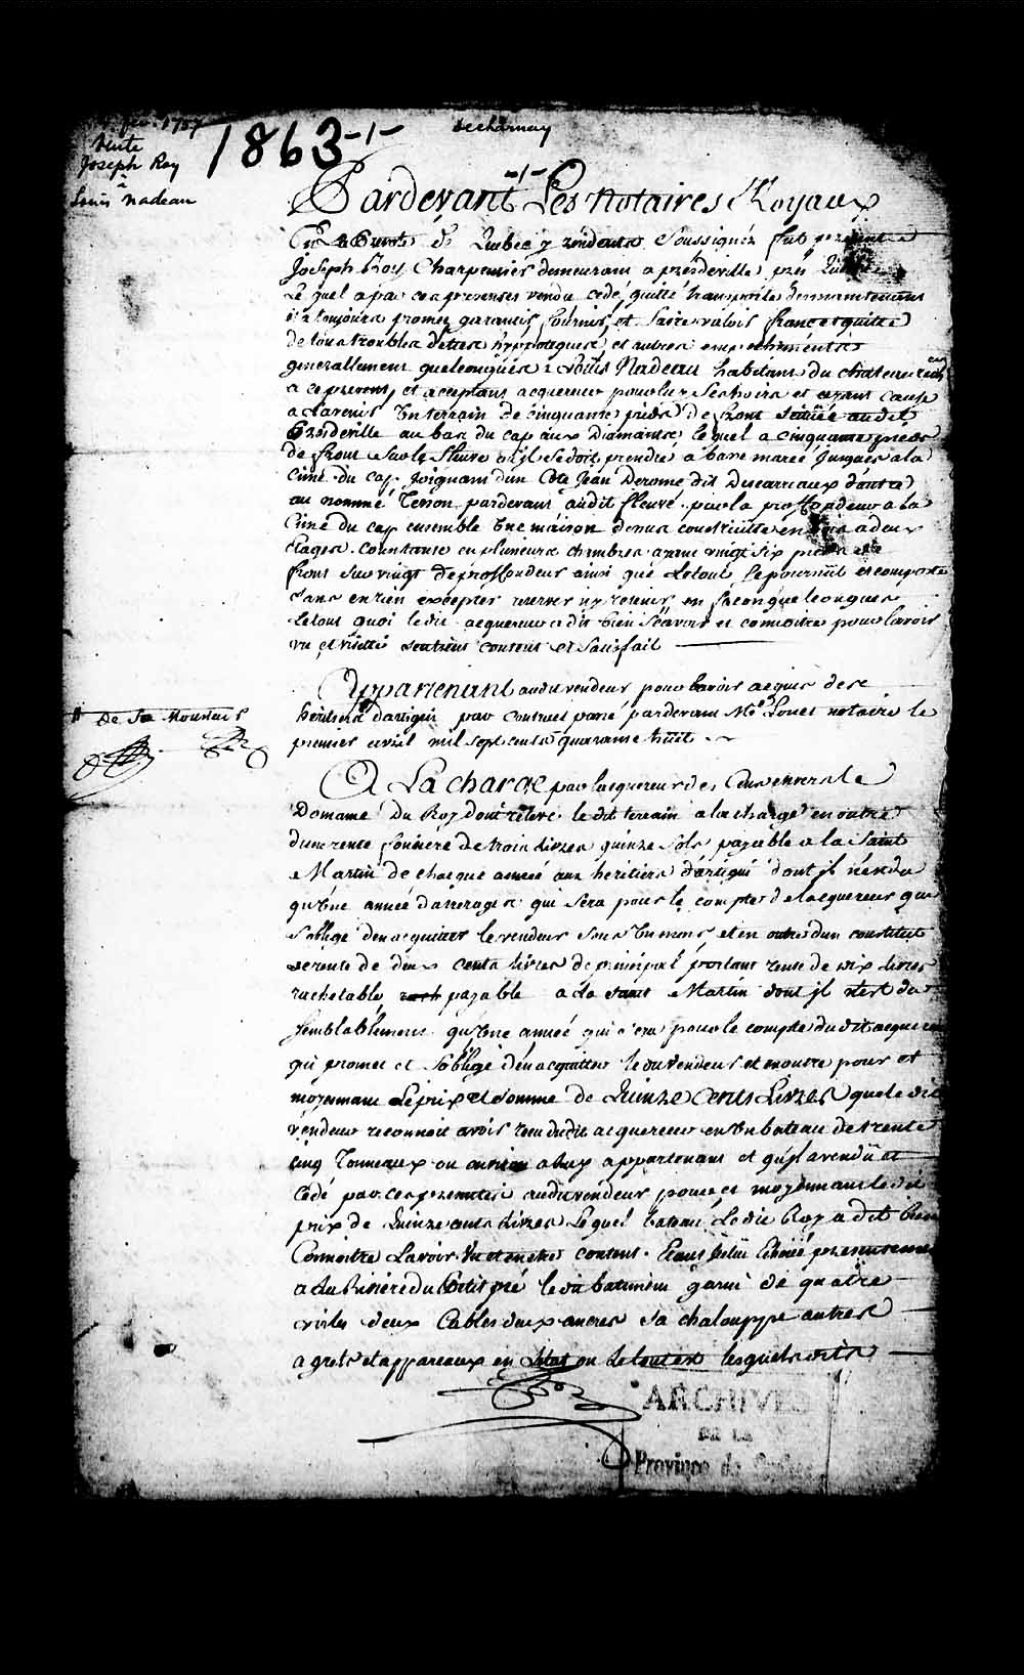 fev. 1757
Vente
Joseph Roy
à
Louis Nadeau
1863-1-
dechamay
Pardevant Les Notaires Royaux
En la de Quebec y residents Soussignés fut presente
Joseph Roy Charpentier demeurant a presdeville, près
Lequel a par ces presentes vendu cedé, quitté transporté des maintenant
et a toujours promet garantir fournir et faire valoir franc et quitte
de tous troubles dettes hypoteques et autres empechements
generallement quelconques a Louis Nadeau habitant du
a ce present, et aceptant acquereur pour luy Ses hoirs et ayant cause
a l'avenir Un terrain de cinquante pieds de front Scitüé audit
Presdeville au bas du cap aux Diamants, lequel a cinquante pieds
de front Sur le fleuve qu'il se doit prendre a basse marée Jusques a la
Cime du cap Joignant d'un Coté Jean Derome dit Descarreaux d'autre
au nommé Tesson pardevant audit fleuve pour la proffondeur a la
Cime du cap ensemble Une maison dessus construitte en a deux
Etages Consistante en plusieurs chambres ayant vingt Six pieds
front Sur vingt de proffondeur ainsi que Letout Se poursuit et comporte
Sans en rien excepter reserver ny retenir en façon quelconques
Letout quoi ledit acquereur a dit bien Sçavoir et connoitre pour lavoir
vu et visitté dont il est content et Satisfait
Appartenant audit vendeur pour lavoir acquis de Sr
heritiers dartigui par Contract passé pardevant Me. Louet notaire le
premier avril mil Sept cents quarante huit
De Sa Moustais
A La charge par lacquereur des Cens envers le
Domaine du Roy dont releve ledit terrain a la charge en outre
dune rente fonciere de trois Livres quinze Sols payable a la Saint
Martin de chaque année aux heritiers dartigui dont il n'est du
qu'Une année d'arrerages qui Sera pour le compte de lacquereur qui
S'oblige d'en acquitter le vendeur et en outre dun constitut
de rente de deux Cents Livres de principal portant rente de dix Livres
rachetable payable a la Saint Martin dont il n'est du
Semblablement qu'Une année qui Sera pour le compte dudit acquereur
qui promet et S'oblige d'en acquitter ledit vendeur et en outre pour et
moyennant Le prix et Somme de Quinze Cents Livres que ledit
vendeur reconnoit avoir reçu dudit acquereur en Un bateau de trente
cinq Tonneaux ou environ a luy appartenant et qu'il a vendu et
Cédé par ces presentes audit vendeur pour et moyennant ledit
prix de Quinze cents Livres Lequel bateau Ledit Roy a dit bien
Connoitre Lavoir Vu et en etre content Etant presentement
a la Riviere du ledit batiment garni de quatre
voiles deux Cables deux ancres Sa chalouppe autres
agrets et appareaux en Létat ou Le tout est lesquels dits
ARCHIVES
DE LA
Province de Québec